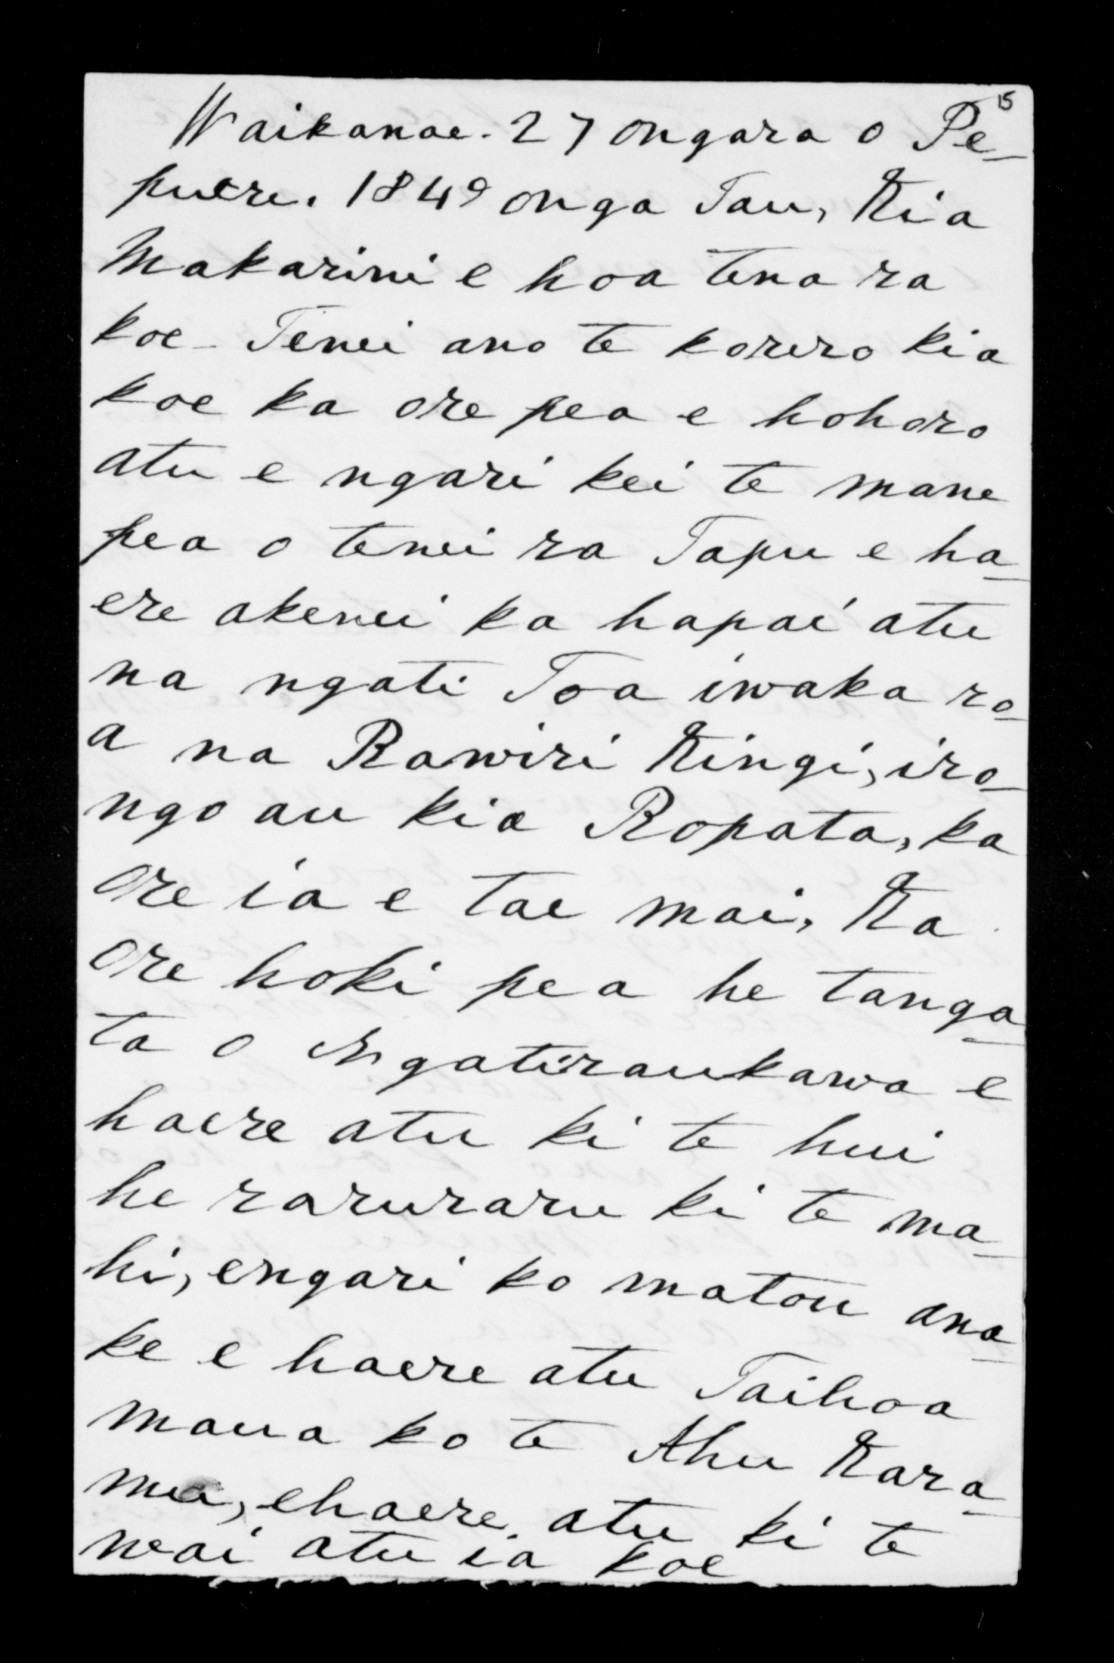 15
Waikanae. 27 onga ra o Pe-
puere. 1849 onga Tau, Kia
Makarini e hoa tena ra
koe - Tenei ano te korero kia
koe ka ore pea e hohoro
atu e ngari kei te mane
pea o tenei ra Tapu e ha-
ere akenei ka hapai atu
na ngati Toa iwaka ro-
a na Rawiri Kingi, iro-
ngo au kia Ropata, ka
ore ia e tae mai, Ka
ore hoki pea he tanga-
ta o Ngatiraukawa e
haere atu ki te hui
he raruraru ki te ma-
hi, engari ko matou ana-
ke e haere atu Taihoa
maua ko te Ahu Kara-
mu, ehaere. atu ki te
wai atu ia koe